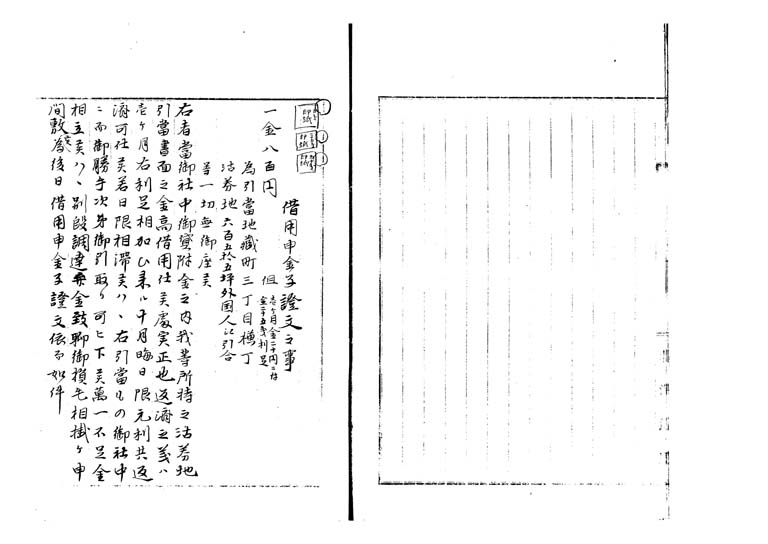 印紙
印紙
印紙
借用申金子證文之事
一金八百円
但壱ヶ月金二十円ニ付
金二十五銭利足
為引當地蔵町三丁目横丁
沽券地六百五拾五坪外国人江引合
等一切無御座候
右者當御社中御積附金之内我等所持之沽券地
引當書面之金高借用仕候處実正也返済之義ハ
壱ヶ月右利足相加ひ来ル十月晦日限元利共返
済可仕候若日限相滞候ハヽ右引當もの御社中
ニ而御勝手次第御引取り可ヒ下候萬一不足金
相立候ハヽ別段調達金致聊御損毛相掛ヶ申
間敷為後日借用申金子證文依而如件